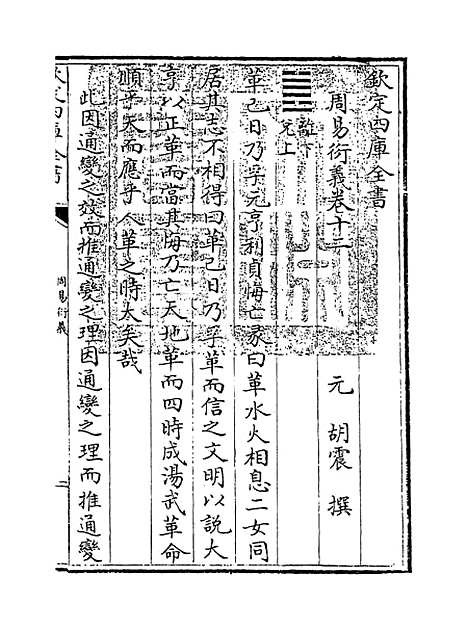 欽定四庫全書
周易衍義卷十二 元 胡震 撰
䷰離下兌上
革已日乃孚元亨利貞悔亡彖曰革水火相息二女同
居其志不相得曰革已日乃孚革而信之文明以說大
亨以正革而當其悔乃亡天地革而四時成湯武革命
順乎天而應乎人革之時大矣哉
此因通變之效而推通變之理因通變之理而推通變
欽定四庫全書
周易衍義